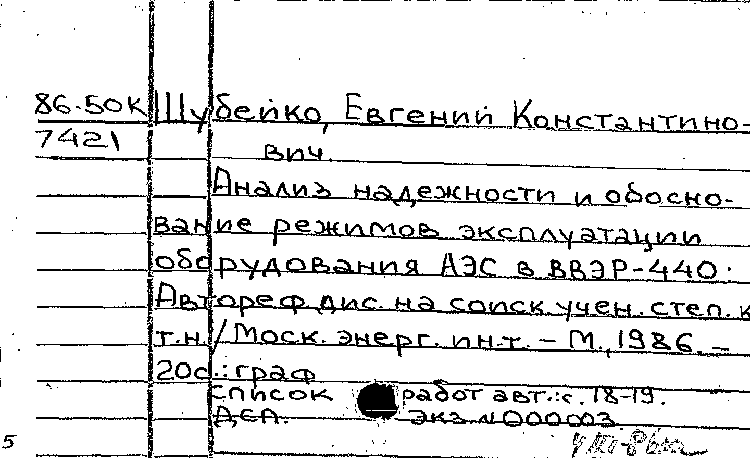 86-50К Шубейко, Евгений Константино-
7421
вич.
Анализ надежности и обосно-
вание режимов эксплуатации
оборудования АЭС в ВВЭР-440.
Автореф дис. на соиск учен. степ. к
т.н. / Моск. энерг. ин.т. – М., 1986. –
20с.: граф
Список работ авт.: с. 18-19.
ДСП. экз. N 000003
5